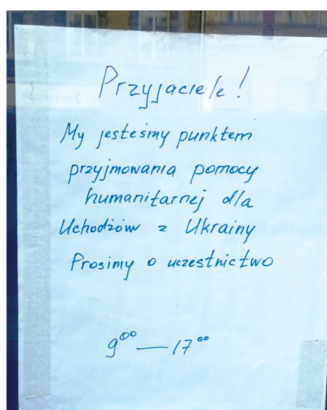 Przyjaciele!
My jesteśmy punktem
przyjmowania pomocy
humanitarnej dla
Uchodźów z Ukrainy
Prosimy o uczestnictwo
9⁰⁰ — 17⁰⁰